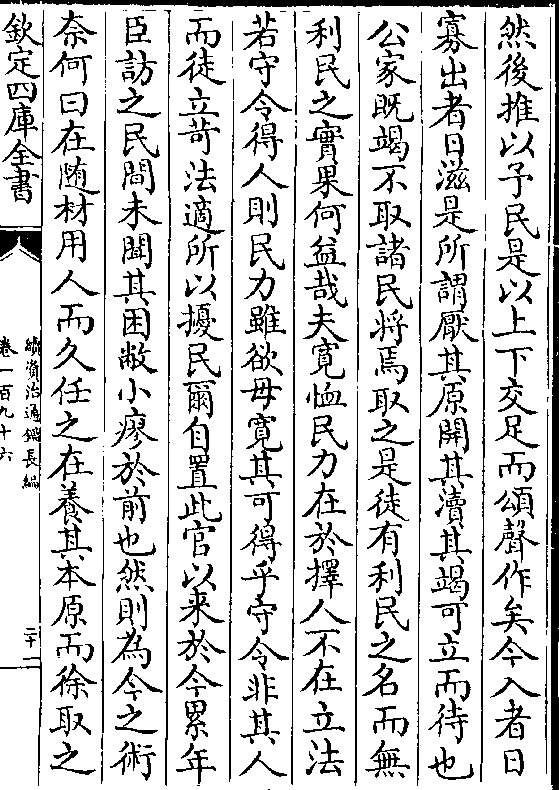 然後推以予民是以上下交足而頌聲作矣今入者日
寡出者日滋是所謂厭其原開其瀆其竭可立而待也
公家既竭不取諸民將焉取之是徒有利民之名而無
利民之實果何益哉夫寛恤民力在於擇人不在立法
若守令得人則民力雖欲毋寛其可得乎守令非其人
而徒立苛法適所以擾民爾自置此官以来於今累年
臣訪之民間未聞其困敝小瘳於前也然則為今之術
奈何曰在随材用人而久任之在養其本原而徐取之
欽定四庫全書
續資治通鑑長編
卷一百九十六
二十二